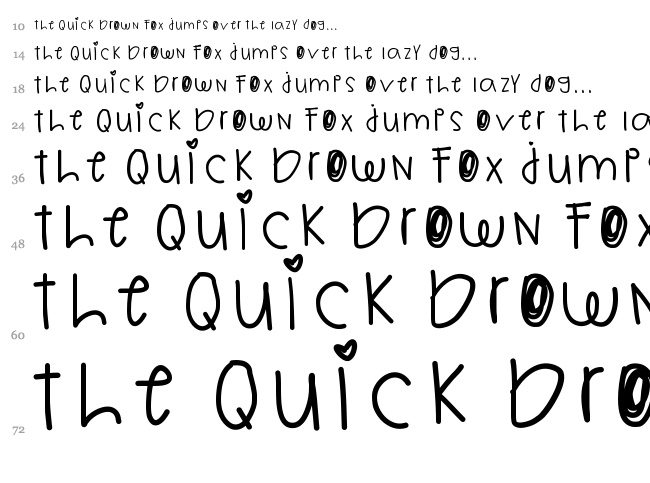 10 the Quick brown fox jumps over the lazy dog...
14 the Quick brown fox jumps over the lazy dog...
18 the Quick brown fox jumps over the lazy dog...
24 the Quick brown fox jumps over the la
36 the Quick brown fox jump
48 the Quick brown fo
60 the Quick brow
72 the Quick bro